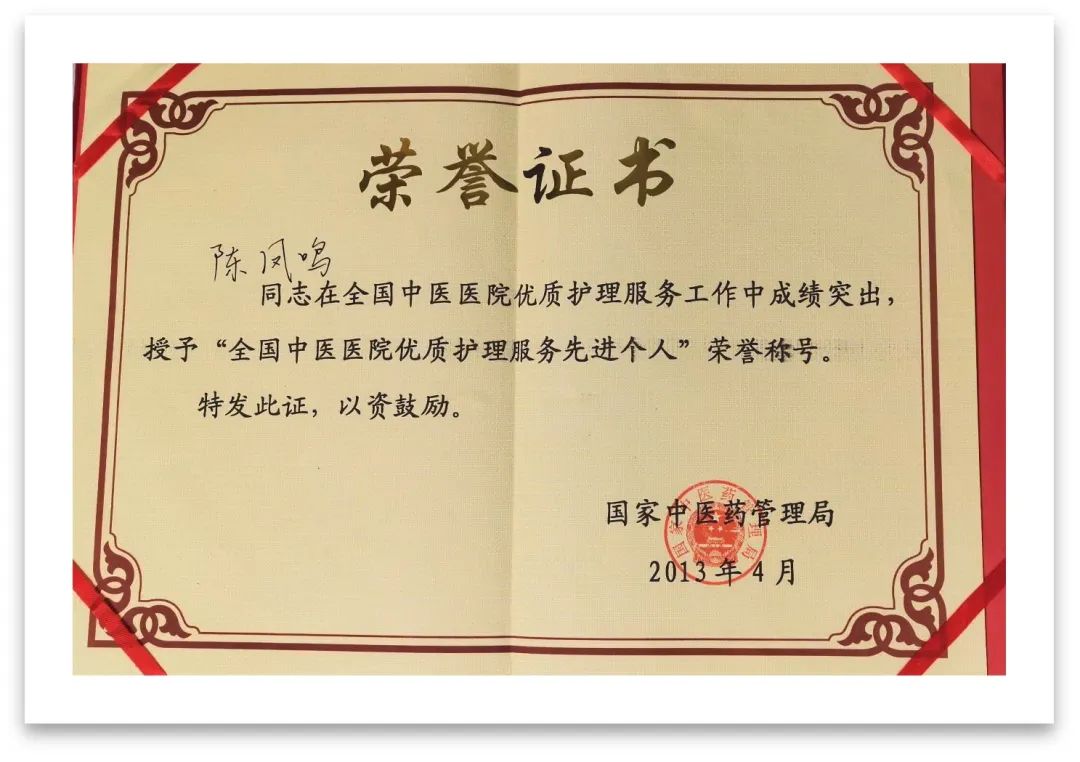 荣誉证书
陈凤鸣
同志在全国中医医院优质护理服务工作中成绩突出，
授予“全国中医医院优质护理服务先进个人”荣誉称号。
特发此证，以资鼓励。
国家中医药管理局
国家中医药管理局
2013年4月